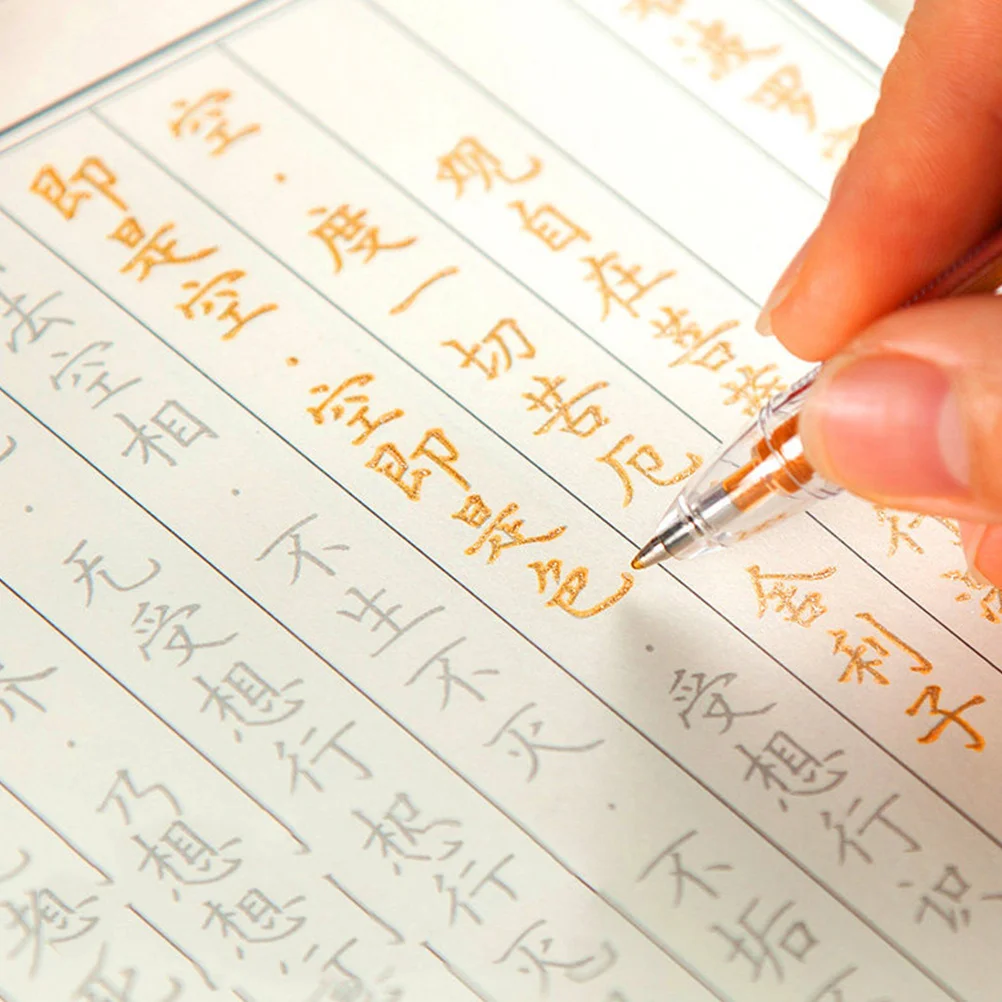 波罗
观自在菩萨行深
空·度一切苦厄舍利子
即是空·空即是色·受想行识
法空相·不生不灭·不垢
·无受想行想行灭
·乃想想
想